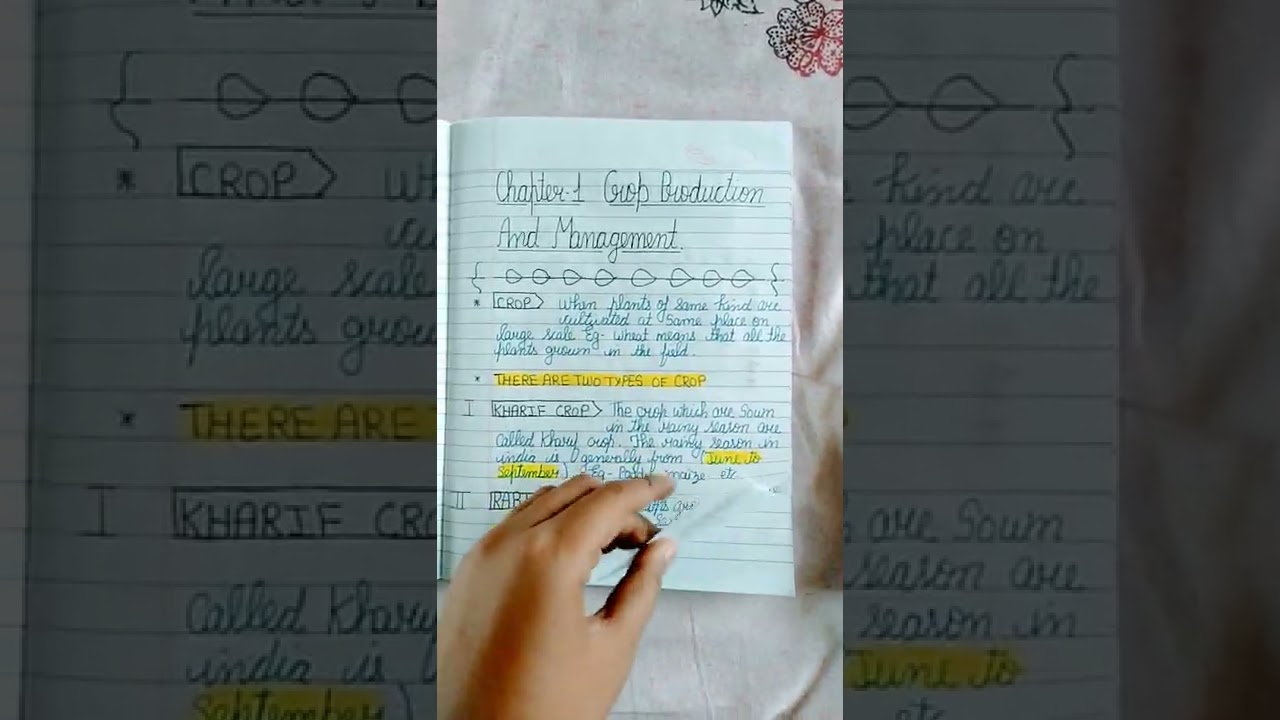 Chapter-1 Crop Production
And Management.
* CROP When plants of same kind are
cultivated at same place on
large scale Eg- wheat means that all the
plants grown in the field.
* THERE ARE TWO TYPES OF CROP
I KHARIF CROP The crop which are Sown
in the rainy season are
called Kharif crop. The rainy season in
india is generally from (June to
September) Eg- Paddy maize etc
II RABI